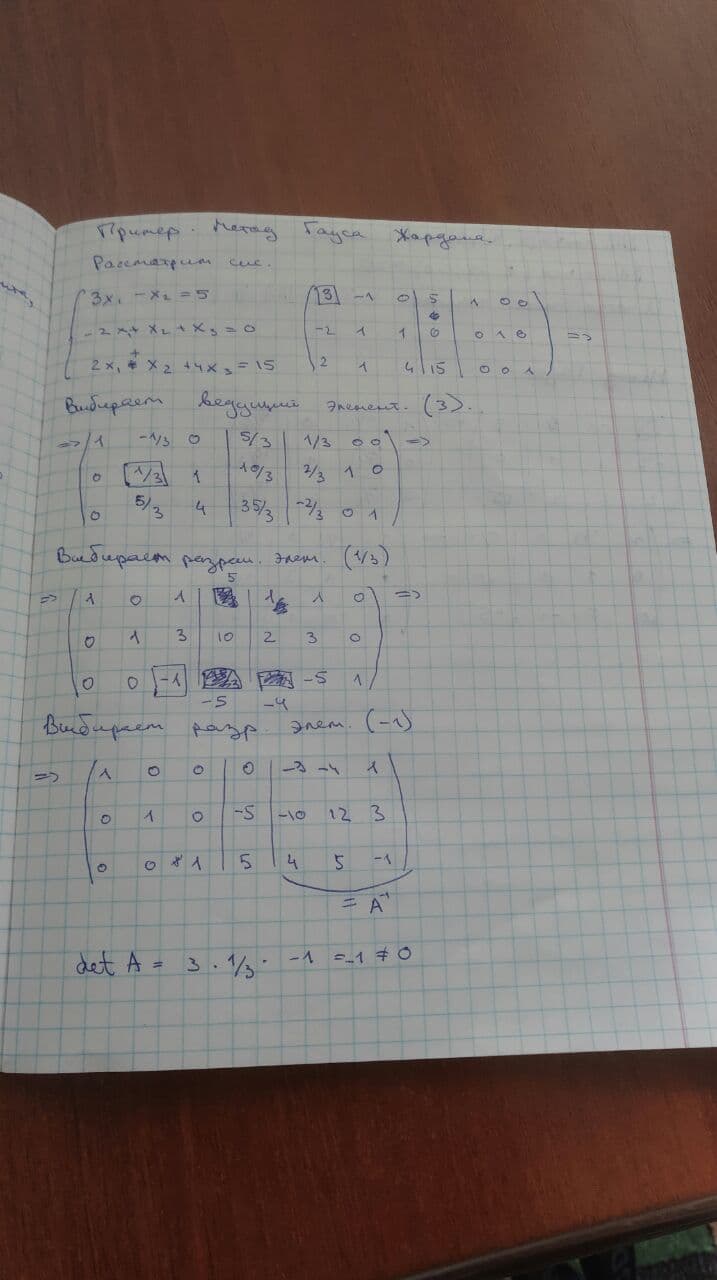 Пример. Метод Гауса Жардана.
Рассмотрим сис.
3x₁ - x₂ = 5
-2x₁ + x₂ + x₃ = 0
2x₁ + x₂ + 4x₃ = 15
3 -1 0 | 5 | 1 0 0
-2 1 1 | 0 | 0 1 0 =>
2 1 4 | 15 | 0 0 1
Выбираем ведущий элемент. (3).
=> 1 -1/3 0 | 5/3 | 1/3 0 0 =>
0 1/3 1 | 10/3 | 2/3 1 0
0 5/3 4 | 35/3 | -2/3 0 1
Выбираем разреш. элем. (1/3)
=> 1 0 1 | 5 | 1 1 0 =>
0 1 3 | 10 | 2 3 0
0 0 -1 | -5 | -4 -5 1
Выбирает разр. элем. (-1)
=> 1 0 0 | 0 | -3 -4 1
0 1 0 | -5 | -10 12 3
0 0 1 | 5 | 4 5 -1
= A⁻¹
det A = 3 · 1/3 · -1 = -1 ≠ 0